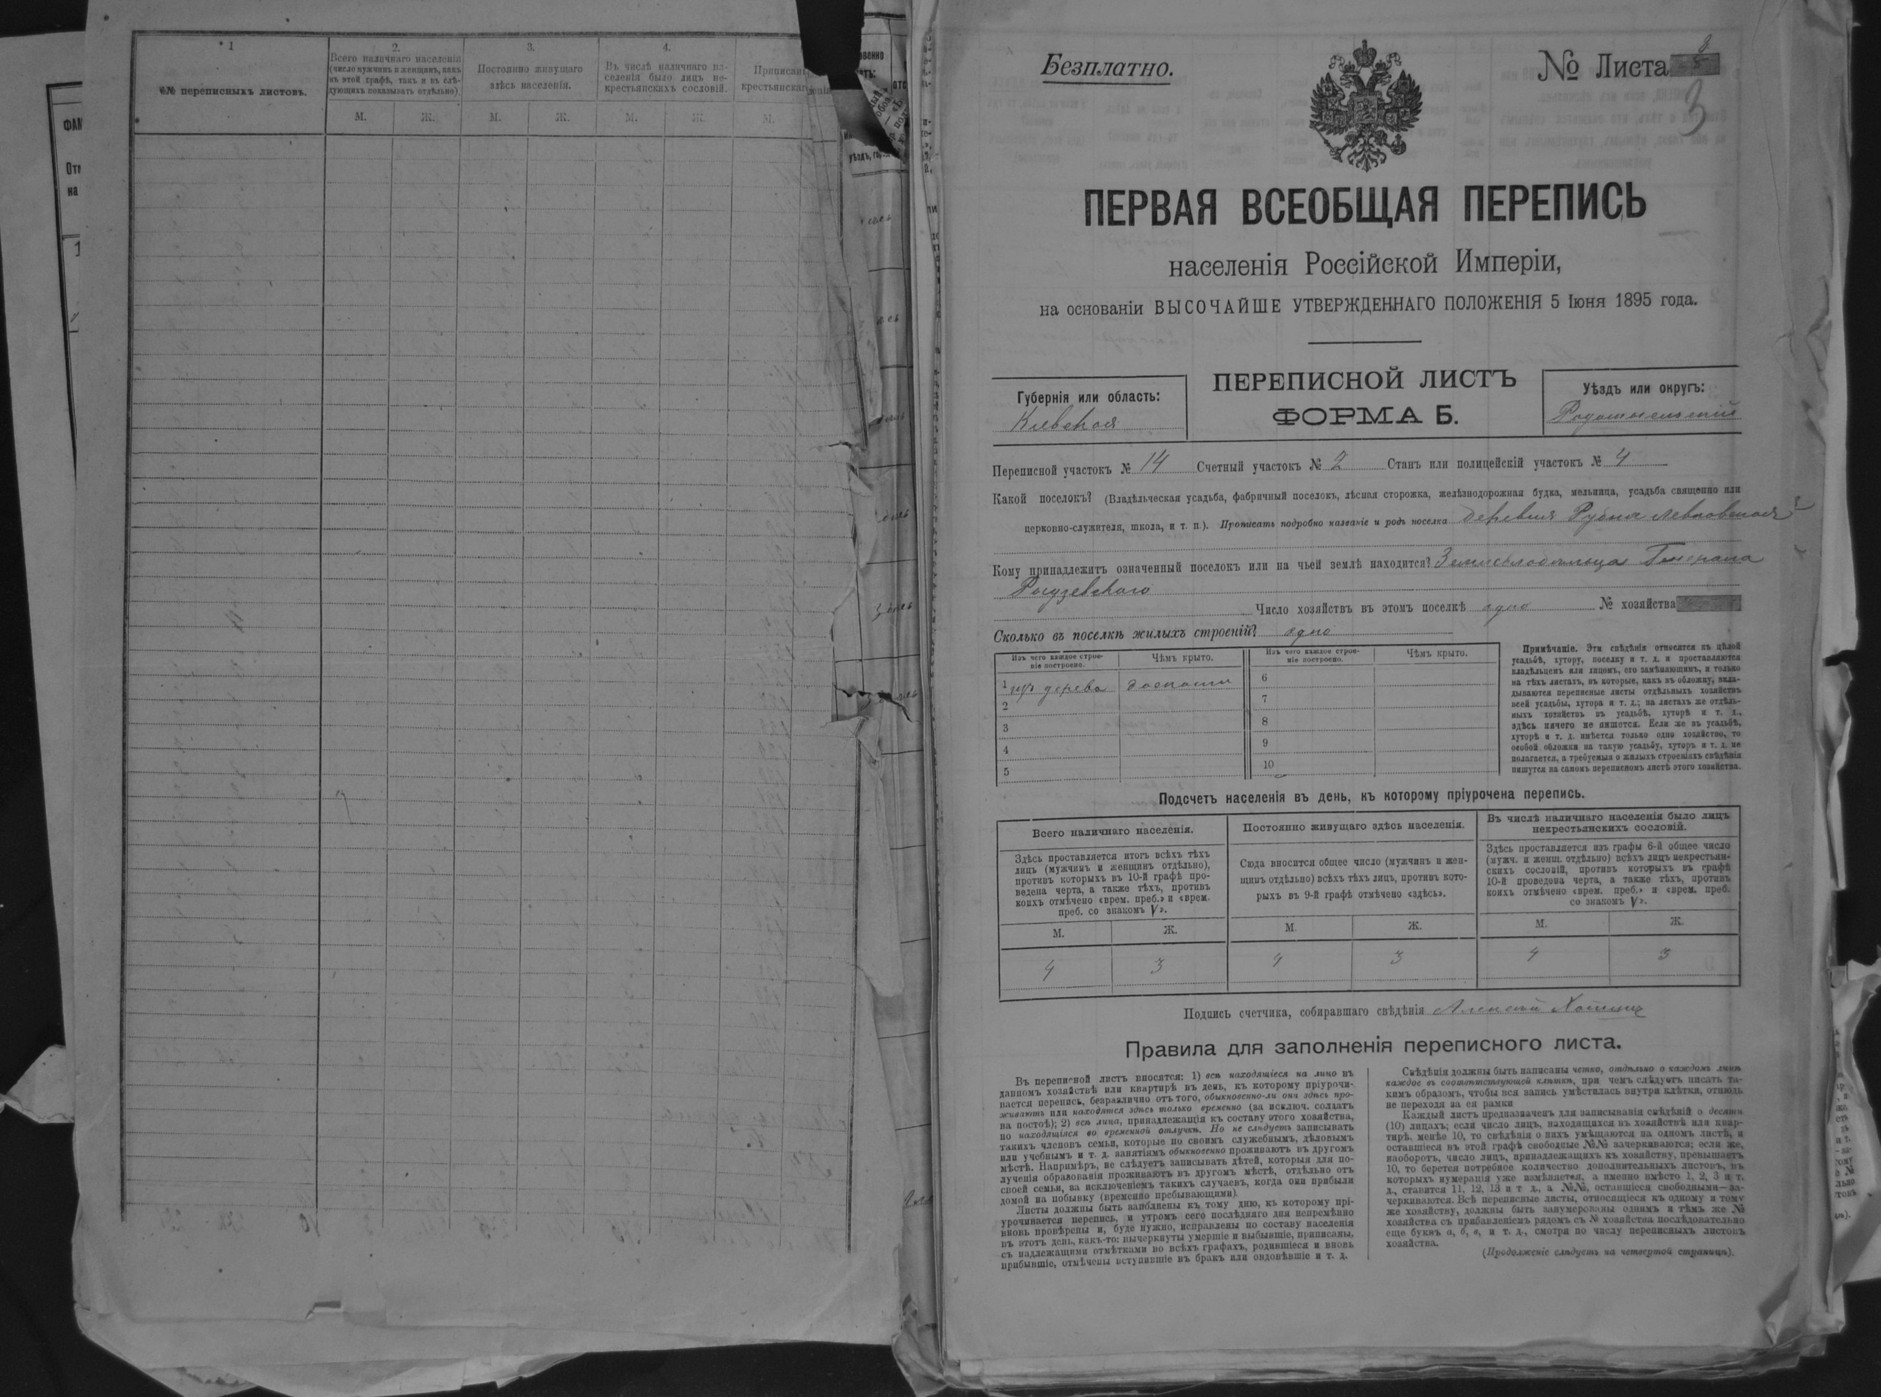 1
2.
3.
4.
№№ переписныхъ листовъ.
Всего наличнаго населенія
(число мужчинъ и женщинъ, какъ
въ этой графѣ, такъ и въ слѣ-
дующихъ показывать отдѣльно).
Постоянно живущаго
здѣсь населенія.
Въ числѣ наличнаго на-
селенія было лицъ не-
крестьянскихъ сословій.
М.
Ж.
М.
Ж.
М.
Ж.
М.
Безплатно.
№ Листа
3
ПЕРВАЯ ВСЕОБЩАЯ ПЕРЕПИСЬ
населенія Россійской Имперіи,
на основаніи ВЫСОЧАЙШЕ УТВЕРЖДЕННАГО ПОЛОЖЕНІЯ 5 Іюня 1895 года.
Губернія или область:
Кіевская
ПЕРЕПИСНОЙ ЛИСТЪ
ФОРМА Б.
Уѣздъ или округъ:
Радомысльскій
Переписной участокъ № 14 Счетный участокъ № 2 Станъ или полицейскій участокъ № 4
Какой поселокъ? (Владѣльческая усадьба, фабричный поселокъ, лѣсная сторожка, желѣзнодорожная будка, мельница, усадьба священно или
церковно-служителя, школа, и т. п.). Прописать подробно названіе и родъ поселка деревня Рудня
Кому принадлежитъ означенный поселокъ или на чьей землѣ находится? Землевладѣльца Генерала
Число хозяйствъ въ этомъ поселкѣ одно № хозяйства
Сколько въ поселкѣ жилыхъ строеній? одно
Изъ чего каждое строе-
ніе построено.
Чѣмъ крыто.
Изъ чего каждое строе-
ніе построено.
Чѣмъ крыто.
1 изъ дерева досками
2
3
4
5
6
7
8
9
10
Примѣчаніе. Эти свѣдѣнія относятся къ цѣлой
усадьбѣ, хутору, поселку и т. д. и проставляются
владѣльцемъ или лицомъ, его замѣняющимъ, и только
на тѣхъ листахъ, въ которые, какъ въ обложку, вкла-
дываются переписные листы отдѣльныхъ хозяйствъ
всей усадьбы, хутора и т. д.; на листахъ же отдѣль-
ныхъ хозяйствъ въ усадьбѣ, хуторѣ и т. д.,
здѣсь ничего не пишется. Если же въ усадьбѣ,
хуторѣ и т. д. имѣется только одно хозяйство, то
особой обложки на такую усадьбу, хуторъ и т. д. не
полагается, а требуемыя о жилыхъ строеніяхъ свѣдѣнія
пишутся на самомъ переписномъ листѣ этого хозяйства.
Подсчетъ населенія въ день, къ которому пріурочена перепись.
Всего наличнаго населенія.
Постоянно живущаго здѣсь населенія.
Въ числѣ наличнаго населенія было лицъ
некрестьянскихъ сословій.
Здѣсь проставляется итогъ всѣхъ тѣхъ
лицъ (мужчинъ и женщинъ отдѣльно),
противъ которыхъ въ 10-й графѣ про-
ведена черта, а также тѣхъ, противъ
коихъ отмѣчено «врем. преб.» и «врем.
преб. со знакомъ V».
Сюда вносится общее число (мужчинъ и жен-
щинъ отдѣльно) всѣхъ тѣхъ лицъ, противъ кото-
рыхъ въ 9-й графѣ отмѣчено «здѣсь».
Здѣсь проставляется изъ графы 6-й общее число
(мужч. и женщ. отдѣльно) всѣхъ лицъ некрестьян-
скихъ сословій, противъ которыхъ въ графѣ
10-й проведена черта, а также тѣхъ, противъ
коихъ отмѣчено «врем. преб.» и «врем. преб.
со знакомъ V».
М.
Ж.
М.
Ж.
М.
Ж.
4
3
4
3
4
3
Подпись счетчика, собиравшаго свѣдѣнія Алексѣй
Правила для заполненія переписного листа.
Въ переписной листъ вносятся: 1) всѣ находящіеся на лицо въ
данномъ хозяйствѣ или квартирѣ въ день, къ которому пріурочи-
вается перепись, безразлично отъ того, обыкновенно-ли они здѣсь про-
живаютъ или находятся здѣсь только временно (за исключ. солдатъ
на постоѣ); 2) всѣ лица, принадлежащія къ составу этого хозяйства,
но находящіяся во временной отлучкѣ. Но не слѣдуетъ записывать
такихъ членовъ семьи, которые по своимъ служебнымъ, дѣловымъ
или учебнымъ и т. д. занятіямъ обыкновенно проживаютъ въ другомъ
мѣстѣ. Напримѣръ, не слѣдуетъ записывать дѣтей, которыя для по-
лученія образованія проживаютъ въ другомъ мѣстѣ, отдѣльно отъ
своей семьи, за исключеніемъ такихъ случаевъ, когда они прибыли
домой на побывку (временно пребывающими).
Листы должны быть заполнены къ тому дню, къ которому прі-
урочивается перепись, и утромъ сего послѣдняго дня непремѣнно
вновь провѣрены и, буде нужно, исправлены по составу населенія
въ этотъ день, какъ-то: вычеркнуты умершіе и выбывшіе, приписаны,
съ надлежащими отмѣтками во всѣхъ графахъ, родившіеся и вновь
прибывшіе, отмѣчены вступившіе въ бракъ или овдовѣвшіе и т. д.
Свѣдѣнія должны быть написаны четко, отдѣльно о каждомъ лицѣ
каждое въ соотвѣтствующей клѣткѣ, при чемъ слѣдуетъ писать та-
кимъ образомъ, чтобы вся запись умѣстилась внутри клѣтки, отнюдь
не переходя за ея рамки
Каждый листъ предназначенъ для записыванія свѣдѣній о десяти
(10) лицахъ; если число лицъ, находящихся въ хозяйствѣ или квар-
тирѣ, менѣе 10, то свѣдѣнія о нихъ умѣщаются на одномъ листѣ, и
оставшіеся въ этой графѣ свободные №№ зачеркиваются; если же,
наоборотъ, число лицъ, принадлежащихъ къ хозяйству, превышаетъ
10, то берется потребное количество дополнительныхъ листовъ, въ
которыхъ нумерація уже измѣняется, а именно вмѣсто 1, 2, 3 и т.
д., ставится 11, 12, 13 и т. д., а №№, оставшіеся свободными—за-
черкиваются. Всѣ переписные листы, относящіеся къ одному и тому
же хозяйству, должны быть занумерованы однимъ и тѣмъ же №
хозяйства съ прибавленіемъ рядомъ съ № хозяйства послѣдовательно
еще буквъ а, б, в, и т. д., смотря по числу переписныхъ листовъ
хозяйства.
(Продолженіе слѣдуетъ на четвертой страницѣ).